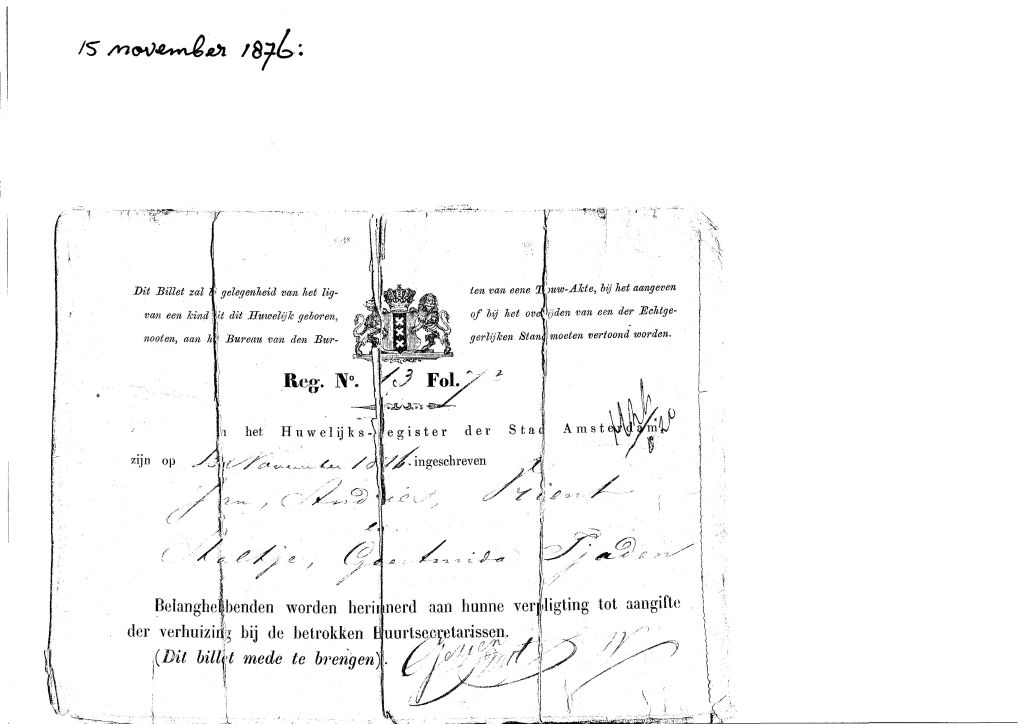 15 november 1876:
Dit Billet zal b gelegenheid van het lig- ten van eene Trouw-Akte, bij het aangeven
van een kind uit dit Huwelijk geboren, of bij het overlijden van een der Echtge-
nooten, aan het Bureau van den Bur- gerlijken Stand moeten vertoond worden.
Reg. No. 13 Fol.
n het Huwelijks-Register der Stad Amsterdam
zijn op 15 November 1876. ingeschreven
Jan, Andries, Trient
en
Geertruida Tjaden
Belanghebbenden worden herinnerd aan hunne verpligting tot aangifte
der verhuizing bij de betrokken Buurtsecretarissen.
(Dit billet mede te brengen).